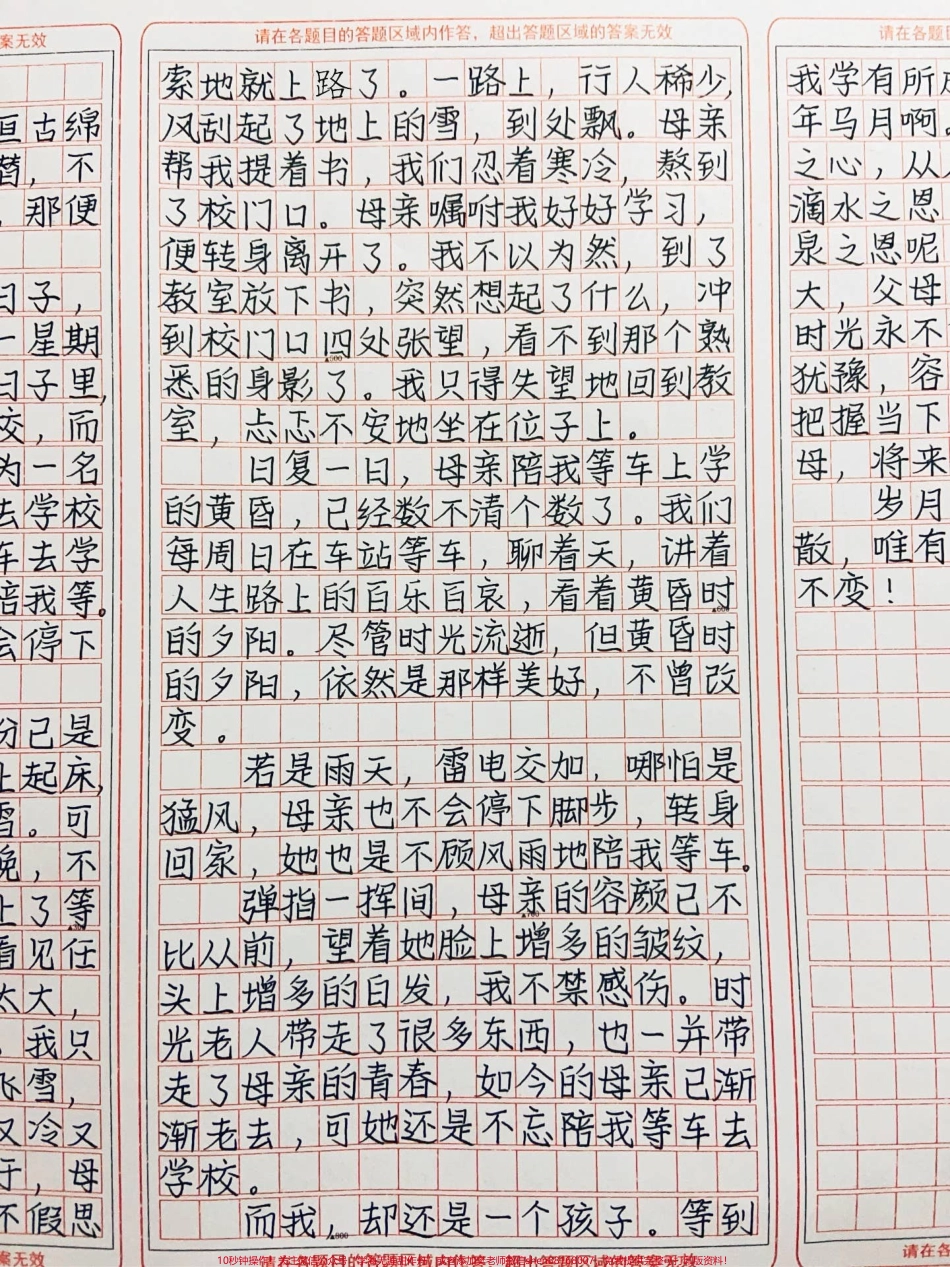 案无效
亘古绵
替，不
，那便
日子，
一星期
日子里，
校，而
为一名
去学校
车去学
陪我等。
会停下
份已是
上起床，
雪。可
晚，不
上了等
▲300
看见任
太大，
，我只
飞雪，
又冷又
于，母
不假思
案无效
请在各题目的答题区域内作答，超出答题区域的答案无效
索地就上路了。一路上，行人稀少，
风刮起了地上的雪，到处飘。母亲
帮我提着书，我们忍着寒冷，熬到
了校门口。母亲嘱咐我好好学习，
便转身离开了。我不以为然，到了
教室放下书，突然想起了什么，冲
到校门口四处张望，看不到那个熟
▲500
悉的身影了。我只得失望地回到教
室，忐忑不安地坐在位子上。
日复一日，母亲陪我等车上学
的黄昏，已经数不清个数了。我们
每周日在车站等车，聊着天，讲着
人生路上的百乐百哀，看着黄昏时
▲600
的夕阳。尽管时光流逝，但黄昏时
的夕阳，依然是那样美好，不曾改
变。
若是雨天，雷电交加，哪怕是
猛风，母亲也不会停下脚步，转身
回家，她也是不顾风雨地陪我等车。
弹指一挥间，母亲的容颜已不
▲700
比从前，望着她脸上增多的皱纹，
头上增多的白发，我不禁感伤。时
光老人带走了很多东西，也一并带
走了母亲的青春，如今的母亲已渐
渐老去，可她还是不忘陪我等车去
学校。
而我，却还是一个孩子。等到
▲800
请在各题目的答题区域内作答，超出答题区域的答案无效
请在各题目
我学有所成
年马月啊。
之心，从
滴水之恩
泉之恩呢
大，父母
时光永不
犹豫，容
把握当下
母，将来
岁月
散，唯有
不变！
请在各